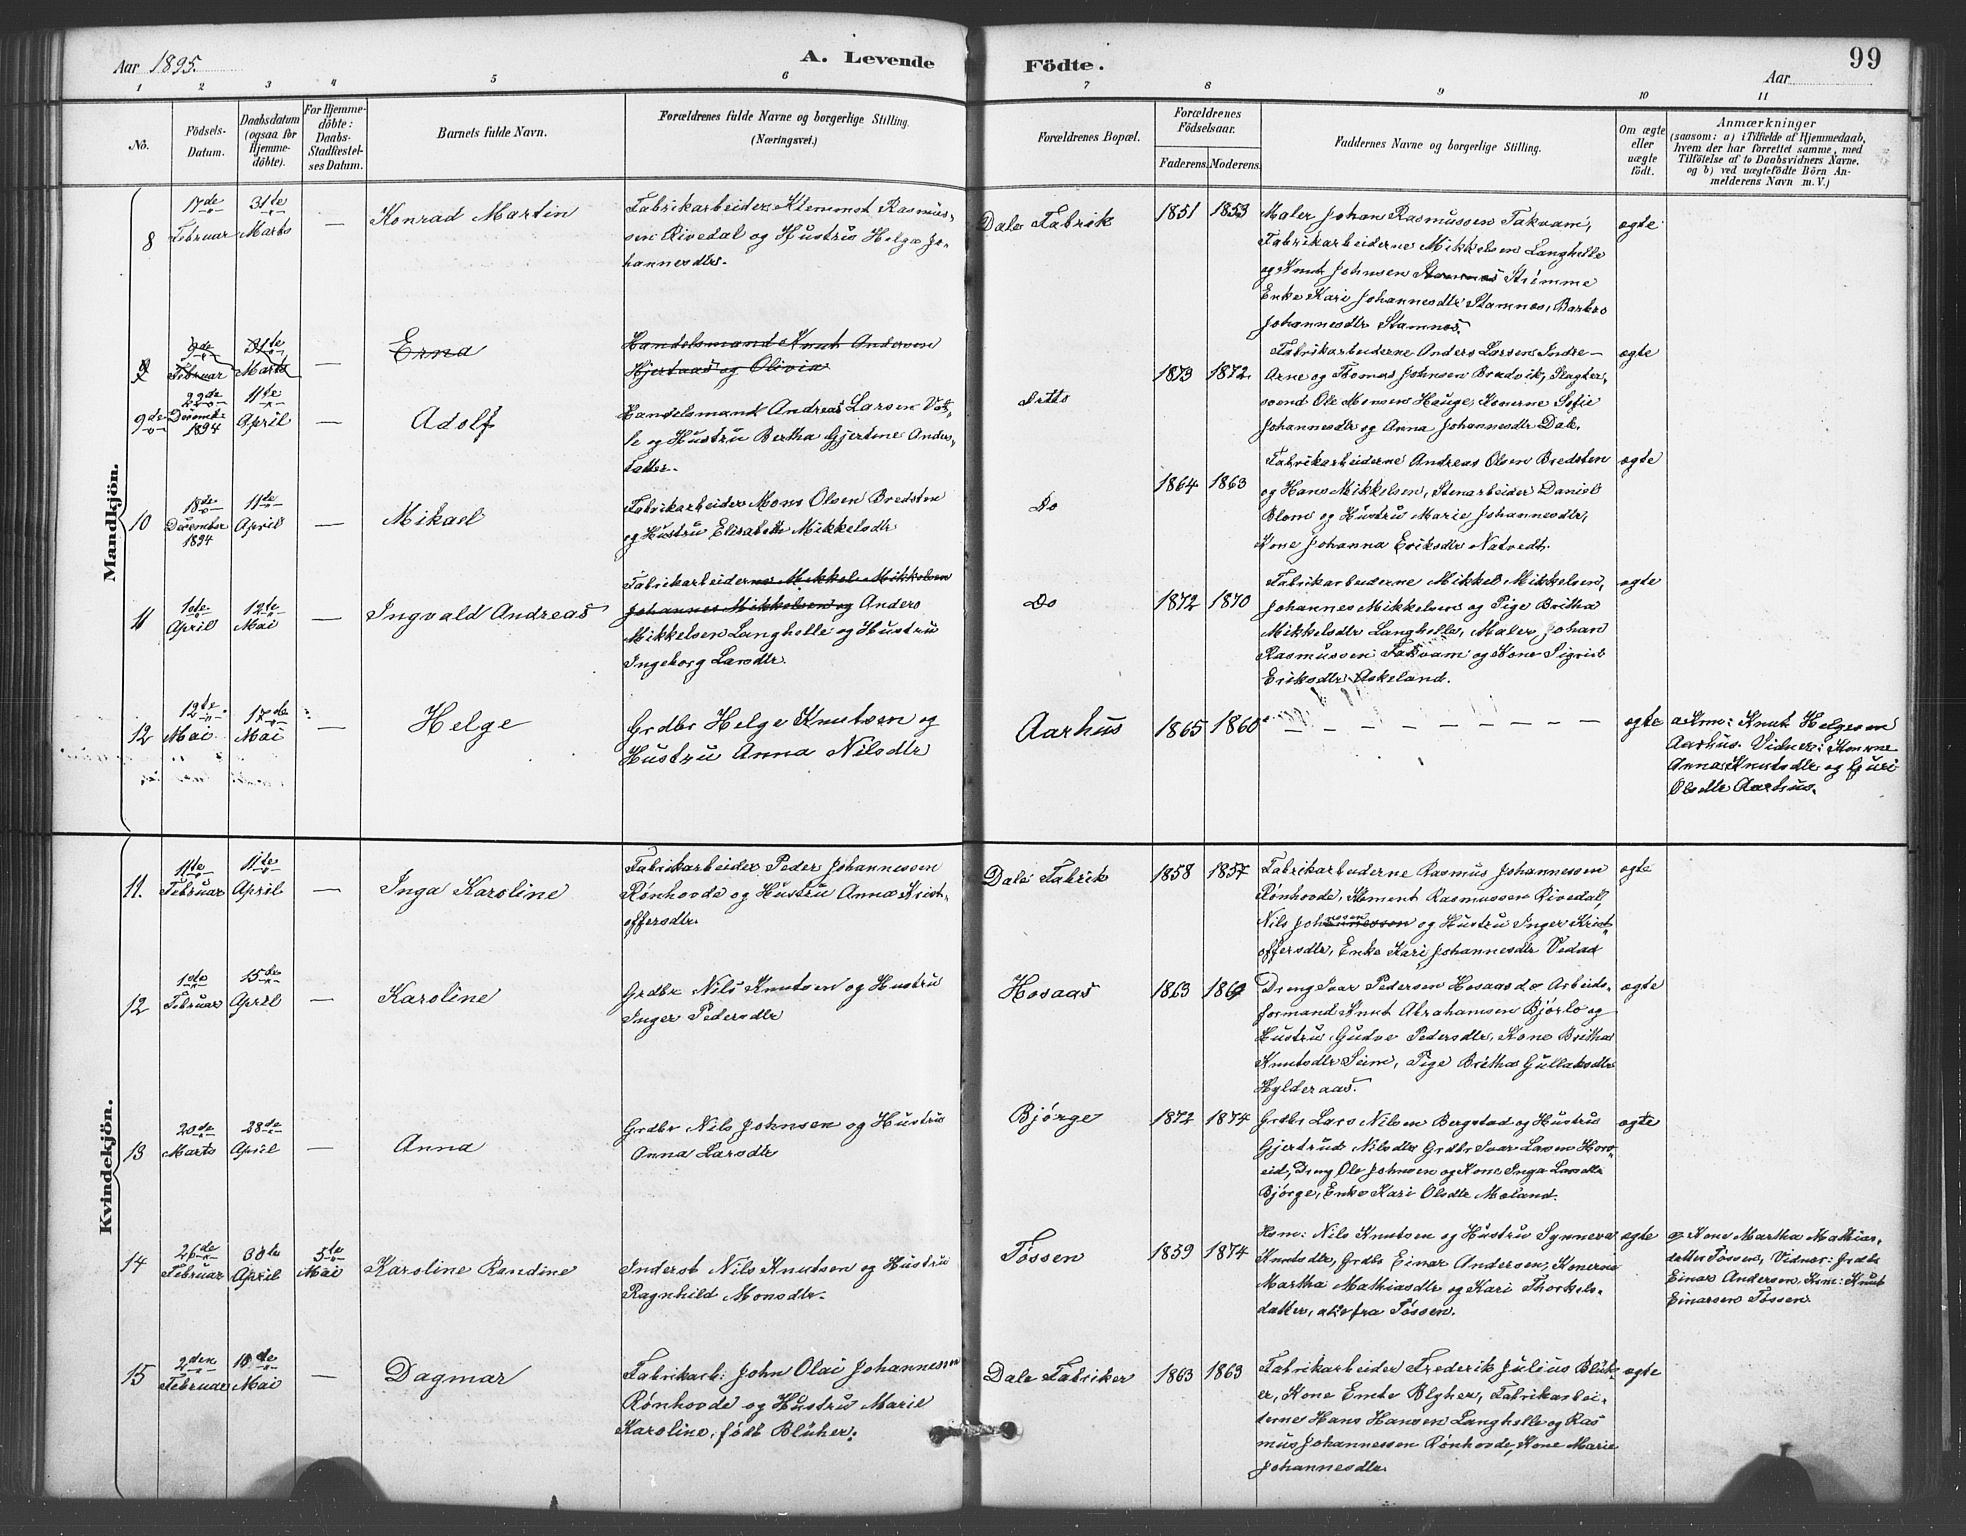 Aar 1895. A. Levende Födte. Aar 99
1 2 3 4 5 6 7 8 9 10 11
No.
Födsels-Datum.
Daabsdatum (ogsaa for Hjemme-döbte).
For Hjemme-döbte: Daabs-Stadfæstel-ses Datum.
Barnets fulde Navn.
Forældrenes fulde Navne og borgerlige Stilling. (Næringsvei.)
Forældrenes Bopæl.
Forældrenes Födselsaar.
Faderens. Moderens.
Faddernes Navne og borgerlige Stilling.
Om ægte eller uægte födt.
Anmærkninger
(saasom: a) i Tilfælde af Hjemmedaab,
hvem der har forrettet samme, med
Tilföielse af to Daabsvidners Navne,
og b) ved uægtefödte Börn An-
melderens Navn m. V.)
Mandkjön.
8
17de Februar
31te Marts
—
Konrad Martin
Fabrikarbeider Klemmet Rasmus-
sen Rivedal og Hustru Helga Jo-
hannesdtr.
Dale Fabrik
1851 1853
Maler Johan Rasmussen Takvam,
Fabrikarbeiderne Mikkelsen Langhelle
og Knut Johnsen Stamnes Strømme
Enke Kari Johannesdtr Stamnes, Barbro
Johannesdtr Stamnes.
ægte
9de Februar
31te Marts
—
Erna
Handelsmand Knut Andersen
Hjertaas og Olivia
9de
22de Decembr 1894
11te April
—
Adolf
Handelsmand Andreas Larsen
og Hustru Bertha Gjertine Anders-
datter.
Ditto
1873 1872
Fabrikarbeiderne Anders Larsen Indre-
Arne og Thomas Johnsen Bradvik, Slagter-
svend Ole Monsen Hauge, Konerne Sofie
Johannesdtr og Anna Johannesdtr Dale.
ægte
10
18de December 1894
11te April
—
Mikael
Fabrikarbeider Mons Olsen Bredsten
og Hustru Elisabeth Mikkelsdtr
Do
1864 1863
Fabrikarbeiderne Andreas Olsen Bredsten
og Hans Mikkelsen, Stenarbeider Daniel
Blom og Hustru Marie Johannesdtr,
Kone Johanna Eriksdtr Natvedt.
ægte
11
1ste April
12te Mai
—
Ingvald Andreas
Fabrikarbeiderne Mikkel Mikkelsen
Johannes Mikkelsen og Anders
Mikkelsen Langhelle og Hustru
Ingeborg Larsdtr.
Do
1872 1870
Fabrikarbeiderne Mikkel Mikkelsen,
Johannes Mikkelsen og Pige Britha
Mikkelsdtr Langhelle, Maler Johan
Rasmussen Takvam og Kone Sigrid
Eriksdtr Askeland.
ægte
12
12te Mai
17de Mai
—
Helge
Grdbr Helge Knutsen og
Hustru Anna Nilsdtr
Aarhus
1865 1860
— — — — — — — —
ægte
a Km: Knut Helgesen
Aarhus. Vidner: Konerne
Anna Knutsdtr og Guri
Olsdtr Aarhus.
Kvindekjön.
11.
11te Februar
11te April
—
Inga Karoline
Fabrikarbeider Peder Johannessen
Rønhovde og Hustru Anna Krist-
offersdtr.
Dale Fabrik
1858 1857
Fabrikarbeiderne Rasmus Johannessen
Rønhovde, Klement Rasmussen Rivedal,
Nils Johannessen og Hustru Inger Krist-
offersdtr, Enke Kari Johannesdtr Vedaa
ægte
12
1ste Februar
15de April
—
Karoline
Grdbr Nils Knutsen og Hustru
Inger Pedersdtr
Hosaas
1863
Dreng Ivar Pedersen Hosaas do Arbeids-
formand Knut Abrahamsen Bjørlo og
Hustru Gudve Pedersdtr, Kone Britha
Knutsdtr Seim, Pige Britha Gullaksdtr
Hylderaas.
ægte
13
20de Marts
28de April
—
Anna
Grdbr Nils Johnsen og Hustru
Anna Larsdtr
Bjørge
1872 1874
Grdbr Lars Nilsen Bergstad og Hustru
Gjertrud Nilsdtr Grdbr Ivar Larsen Horv-
eid, Dreng Ole Johnsen og Kone Inga Larsdtr
Bjørge, Enke Kari Olsdtr Moland.
ægte
14
26de Februar
30te April
5te Mai
Karoline Randine
Inderst Nils Knutsen og Hustru
Ragnhild Monsdtr.
Tøssen
1859 1874
Hsm: Nils Knutsen og Hustru Synneva
Knutsdtr, Grdbr Einar Andersen, Konerne
Martha Mathiasdtr og Kari Thorkels-
datter, alle fra Tøssen.
ægte
a Kone Martha Mathias-
datter Tøssen, Vidner: Grdbr
Einar Andersen, Km: Knut
Einarsen Tøssen
15
2den Februar
10de Mai
—
Dagmar
Fabrikarb: John Olai Johannessen
Rønhovde og Hustru Marie
Karoline, født Blüher.
Dale Fabriker
1863 1863
Fabrikarbeider Frederik Julius Blüh-
er, Kone Emte Blyher, Fabrikarbei-
derne Hans Hansen Langhelle og Ras
mus Johannessen Rønhovde, Kone Marie
Johannesdtr
ægte